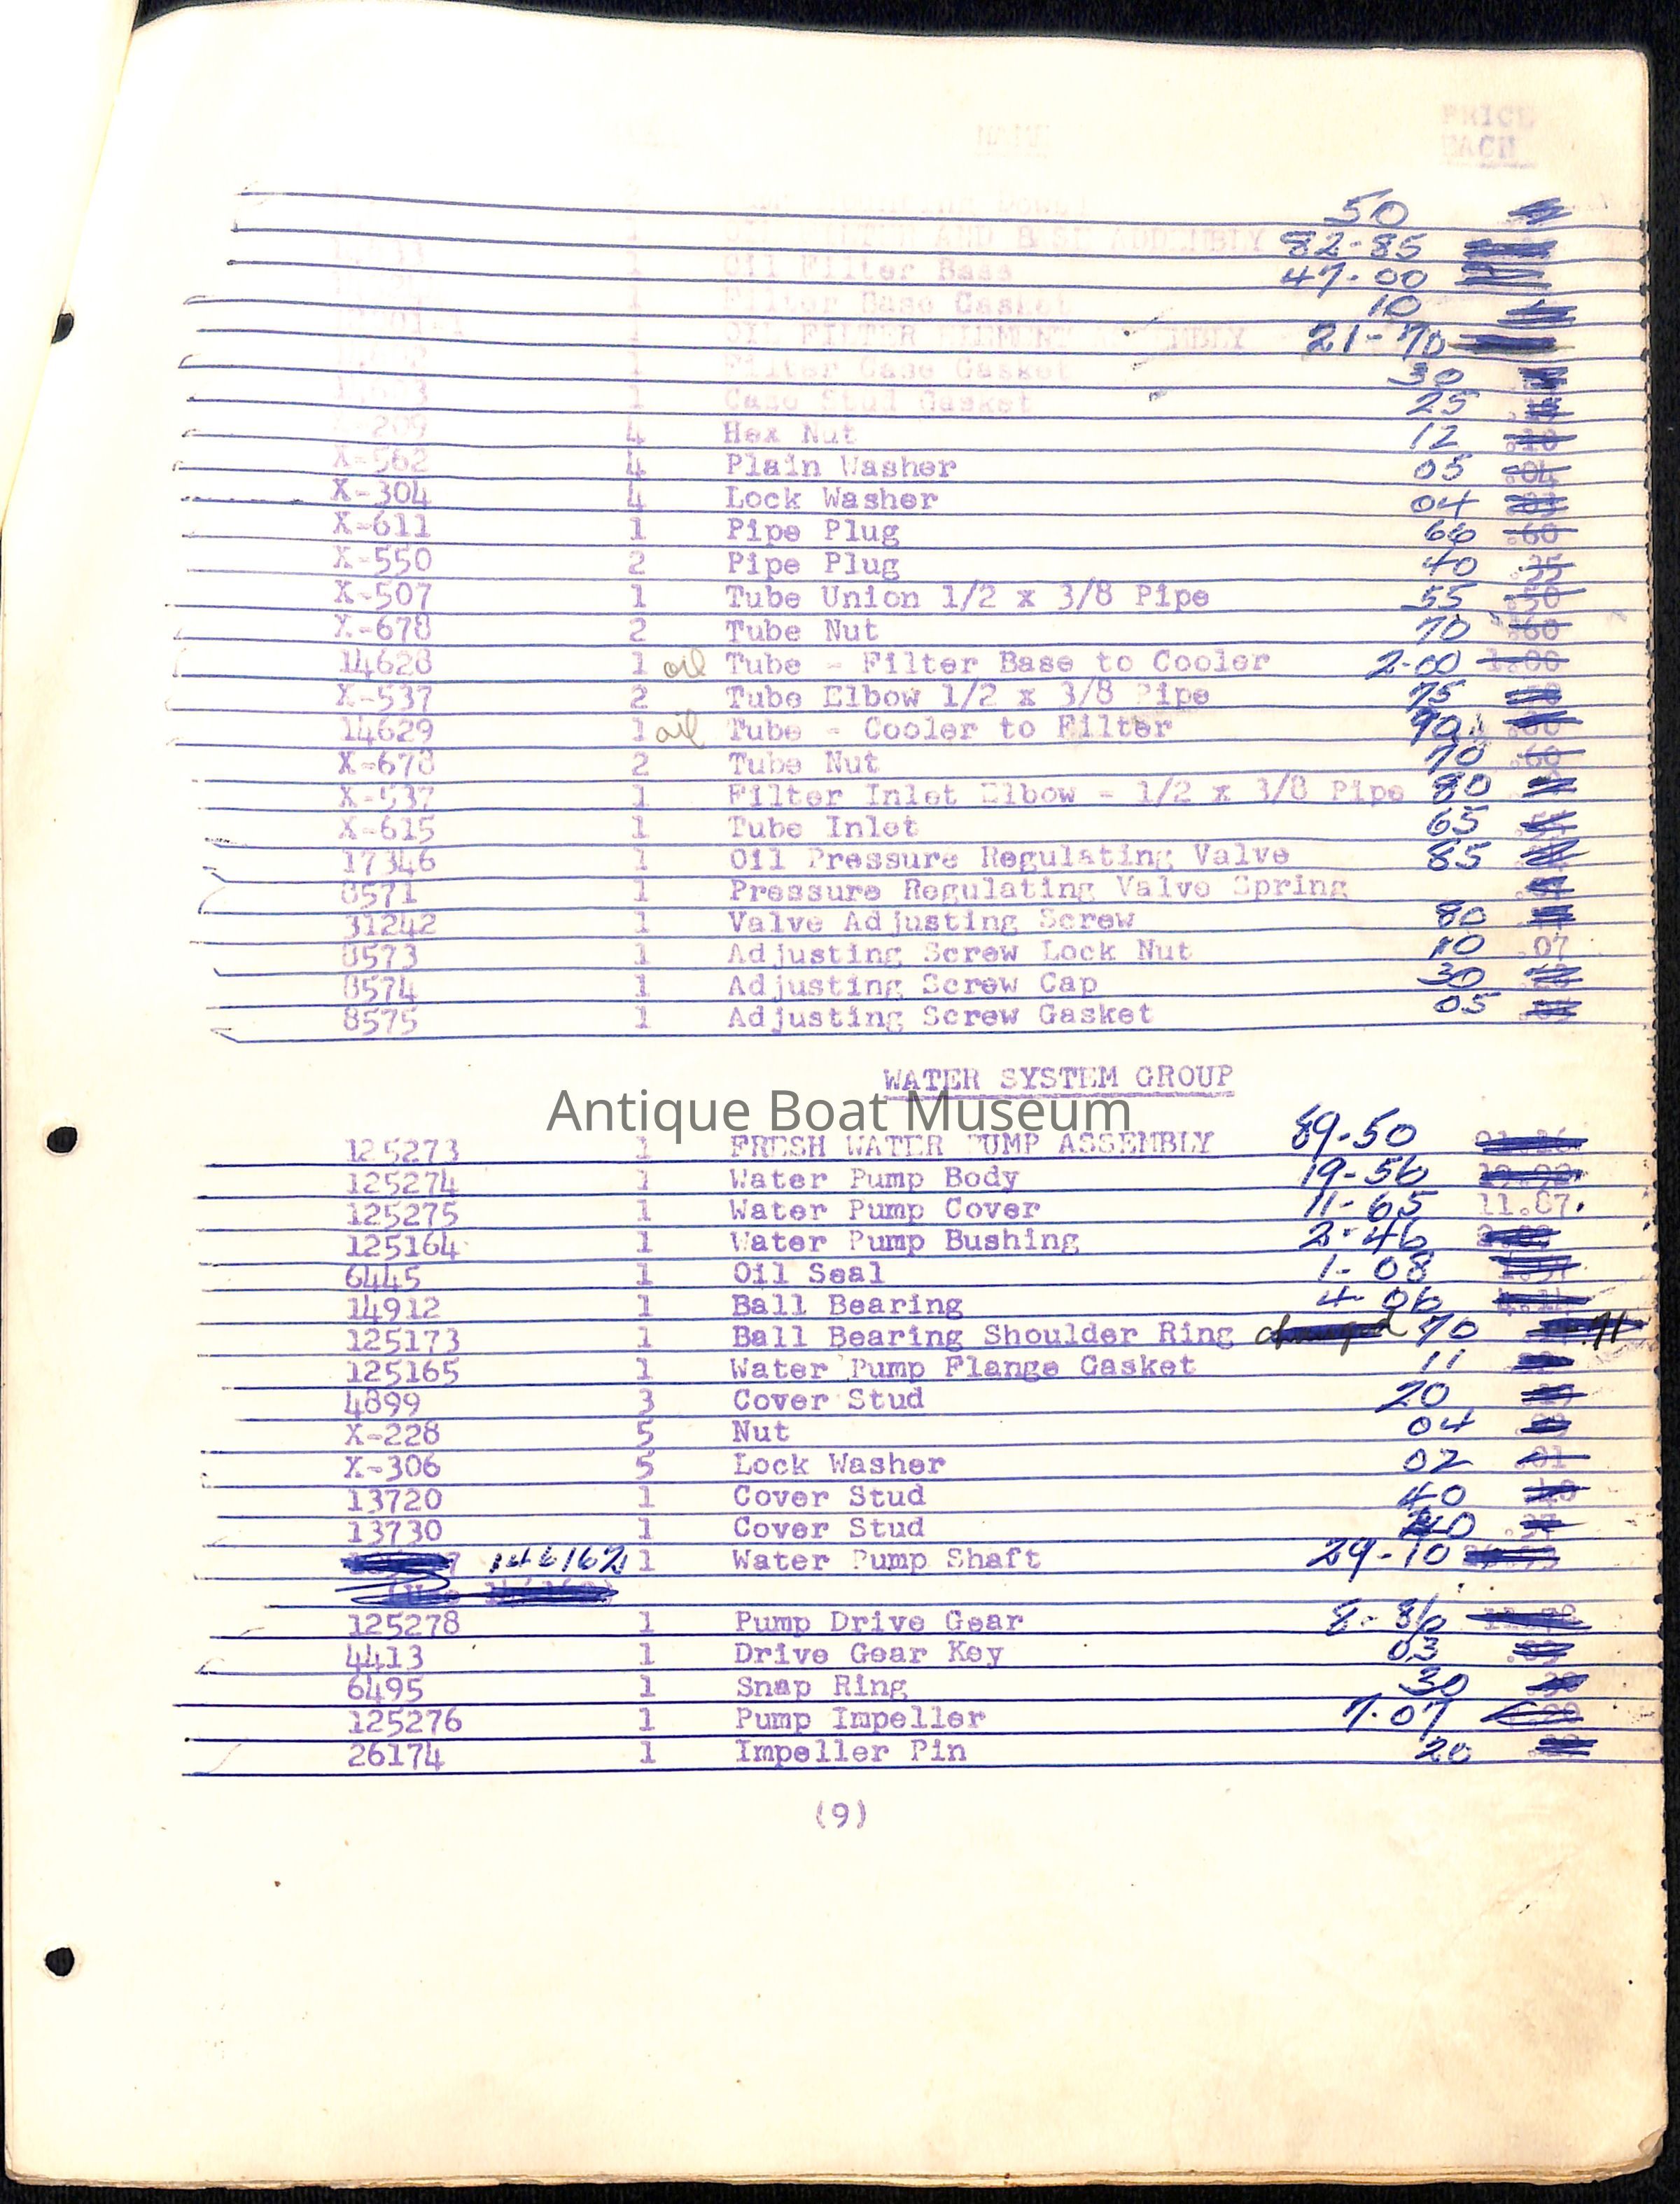 PRICE
EACH
NAME
50
OIL FILTER AND BASE ASSEMBLY 82-85
1 Oil Filter Base 47-00
1 Filter Base Gasket 10
1 OIL FILTER ELEMENT ASSEMBLY 21-70
1 Filter Case Gasket 30
1 Case Stud Gasket 25
X-209 4 Hex Nut 12 .10
X-562 4 Plain Washer 05 .04
X-304 4 Lock Washer 04
X-611 1 Pipe Plug 66 .60
X-550 2 Pipe Plug 40 .35
X-507 1 Tube Union 1/2 x 3/8 Pipe 55 .50
X-678 2 Tube Nut 70 .60
14628 1 oil Tube - Filter Base to Cooler 2-00 1.00
X-537 2 Tube Elbow 1/2 x 3/8 Pipe 75
14629 1 oil Tube - Cooler to Filter 90
X-678 2 Tube Nut 70 .60
X-537 1 Filter Inlet Elbow - 1/2 x 3/8 Pipe 80
X-615 1 Tube Inlet 65
17346 1 Oil Pressure Regulating Valve 85
8571 1 Pressure Regulating Valve Spring
31242 1 Valve Adjusting Screw 80
8573 1 Adjusting Screw Lock Nut 10 .07
8574 1 Adjusting Screw Cap 30
8575 1 Adjusting Screw Gasket 05
WATER SYSTEM GROUP
Antique Boat Museum
125273 1 FRESH WATER PUMP ASSEMBLY 89-50
125274 1 Water Pump Body 19-56
125275 1 Water Pump Cover 11-65 11.87
125164 1 Water Pump Bushing 2-46
6445 1 Oil Seal 1-08
14912 1 Ball Bearing 4-06
125173 1 Ball Bearing Shoulder Ring changed 70 .71
125165 1 Water Pump Flange Gasket 11
4899 3 Cover Stud 20
X-228 5 Nut 04
X-306 5 Lock Washer 02 .01
13720 1 Cover Stud 40
13730 1 Cover Stud 40
146162 1 Water Pump Shaft 29-10
125278 1 Pump Drive Gear 8-86
4413 1 Drive Gear Key 03
6495 1 Snap Ring 30
125276 1 Pump Impeller 7.07
26174 1 Impeller Pin 20
(9)